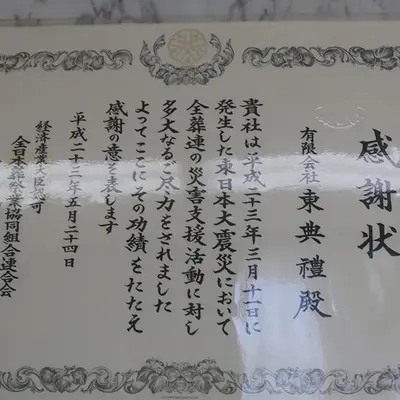 感謝状
有限会社 東典禮 殿
貴社は平成二十三年三月十一日に
発生した東日本大震災において
全葬連の災害支援活動に対し
多大なるご尽力をされました
よってここにその功績をたたえ
感謝の意を表します
平成二十三年五月二十四日
経済産業大臣認可
全日本葬祭業協同組合連合会